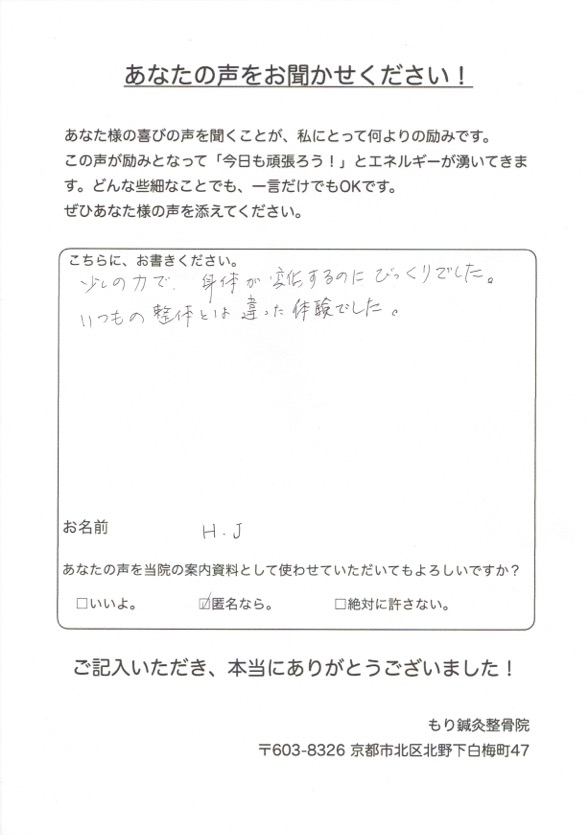 あなたの声をお聞かせください！
あなた様の喜びの声を聞くことが、私にとって何よりの励みです。
この声が励みとなって「今日も頑張ろう！」とエネルギーが湧いてきま
す。どんな些細なことでも、一言だけでもOKです。
ぜひあなた様の声を添えてください。
こちらに、お書きください。
少しの力で、身体が変化するのにびっくりでした。
いつもの整体とは違った体験でした。
お名前 H.J
あなたの声を当院の案内資料として使わせていただいてもよろしいですか？
□いいよ。 ☑匿名なら。 □絶対に許さない。
ご記入いただき、本当にありがとうございました！
もり鍼灸整骨院
〒603-8326 京都市北区北野下白梅町47